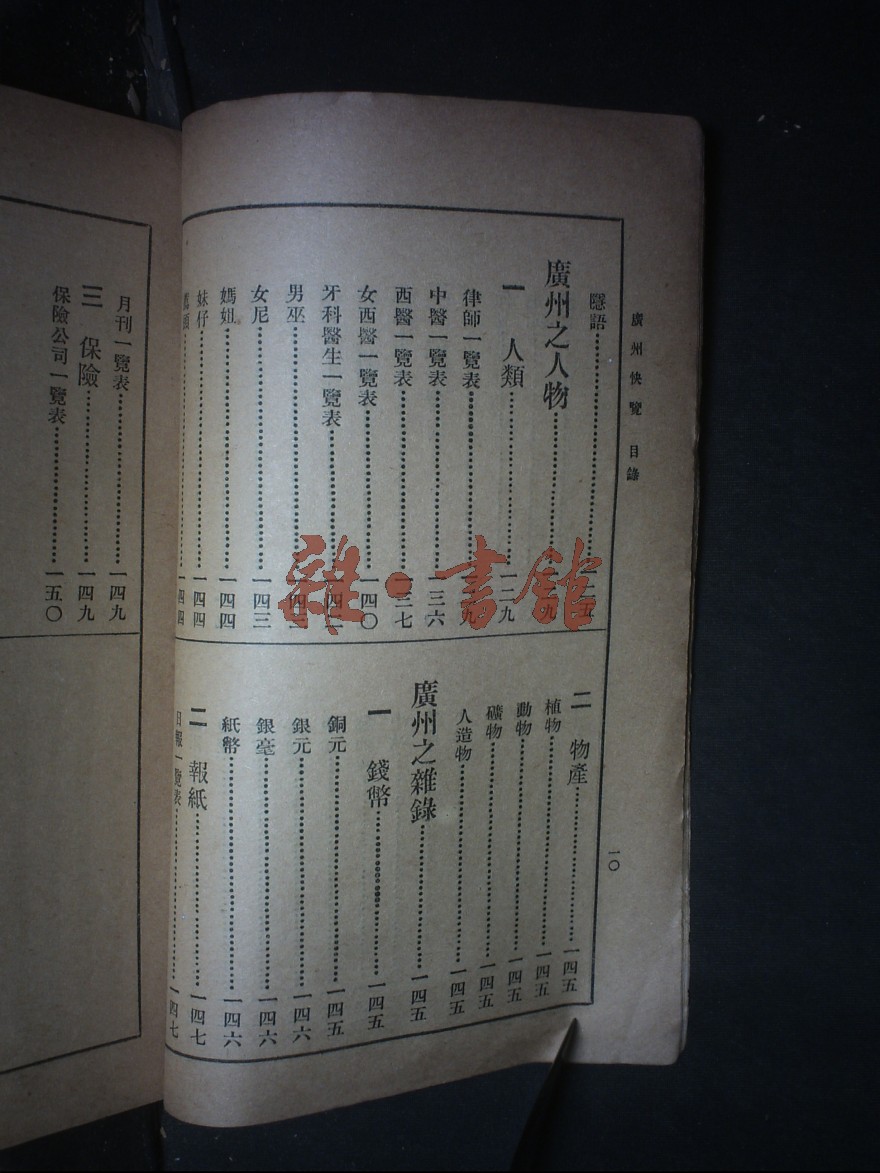 廣州快覽 目錄
一〇
隱語
廣州之人物
一 人類……一二九
律師一覽表
中醫一覽表……一三六
西醫一覽表……一三七
女西醫一覽表……一四〇
牙科醫生一覽表
男巫
女尼……一四三
媽姐……一四四
妹仔……一四四
一四四
二 物產……一四五
植物……一四五
動物……一四五
礦物……一四五
人造物……一四五
廣州之雜錄……一四五
一 錢幣……一四五
銅元……一四五
銀元……一四六
銀毫……一四六
紙幣……一四六
二 報紙……一四七
日報一覽表……一四七
月刊一覽表……一四九
三 保險……一四九
保險公司一覽表……一五〇
雜·書館